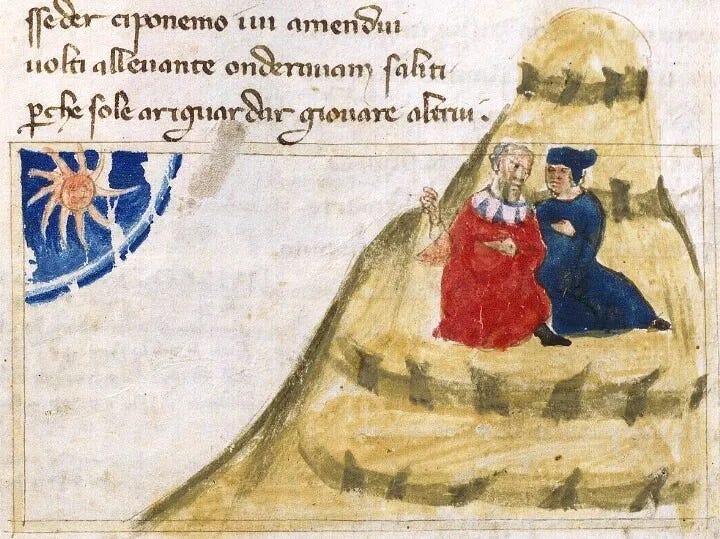 sseder ciponemo iui amendui
uolti alleuante onderauam saliti
ꝑche sole ariguardar giouare altrui.